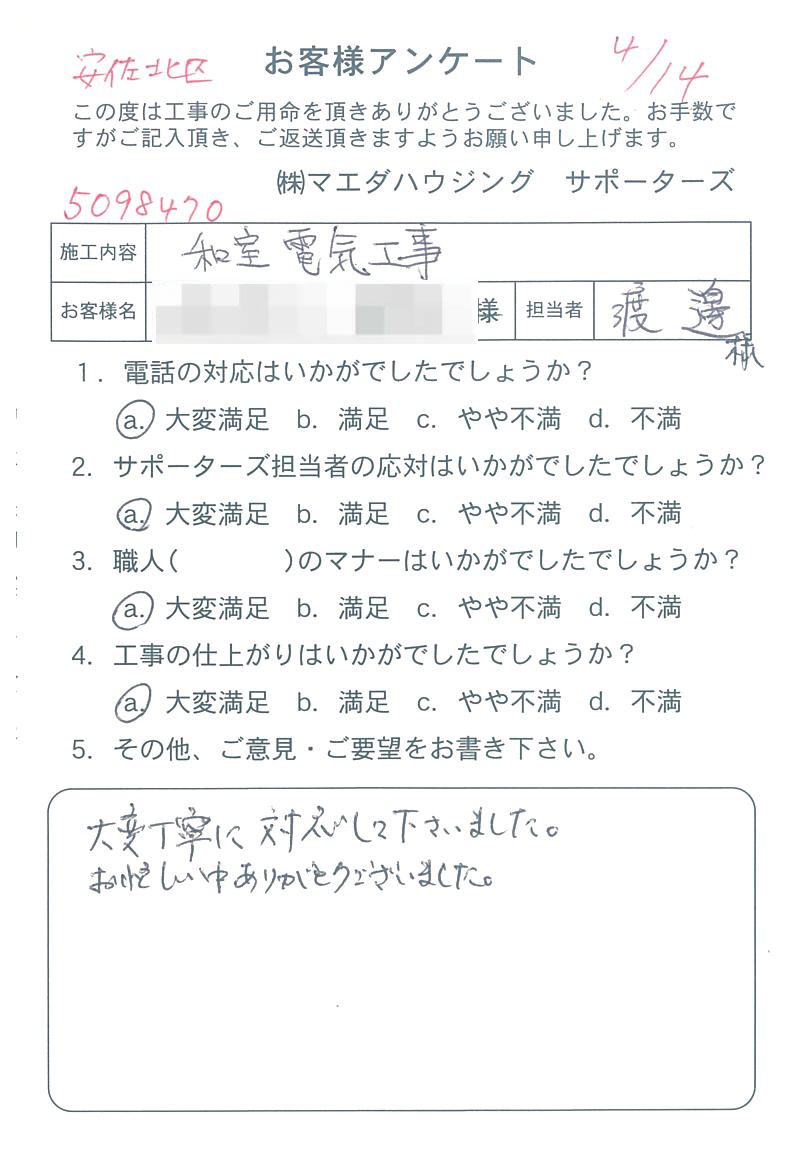 安佐北区 お客様アンケート 4/14
この度は工事のご用命を頂きありがとうございました。お手数で
すがご記入頂き、ご返送頂きますようお願い申し上げます。
㈱マエダハウジング サポーターズ
5098470
施工内容 和室 電気工事
お客様名 様 担当者 渡邊様
1. 電話の対応はいかがでしたでしょうか?
a. 大変満足 b. 満足 c. やや不満 d. 不満
2. サポーターズ担当者の応対はいかがでしたでしょうか?
a. 大変満足 b. 満足 c. やや不満 d. 不満
3. 職人( )のマナーはいかがでしたでしょうか?
a. 大変満足 b. 満足 c. やや不満 d. 不満
4. 工事の仕上がりはいかがでしたでしょうか?
a. 大変満足 b. 満足 c. やや不満 d. 不満
5. その他、ご意見・ご要望をお書き下さい。
大変丁寧に対応して下さいました。
お忙しい中ありがとうございました。